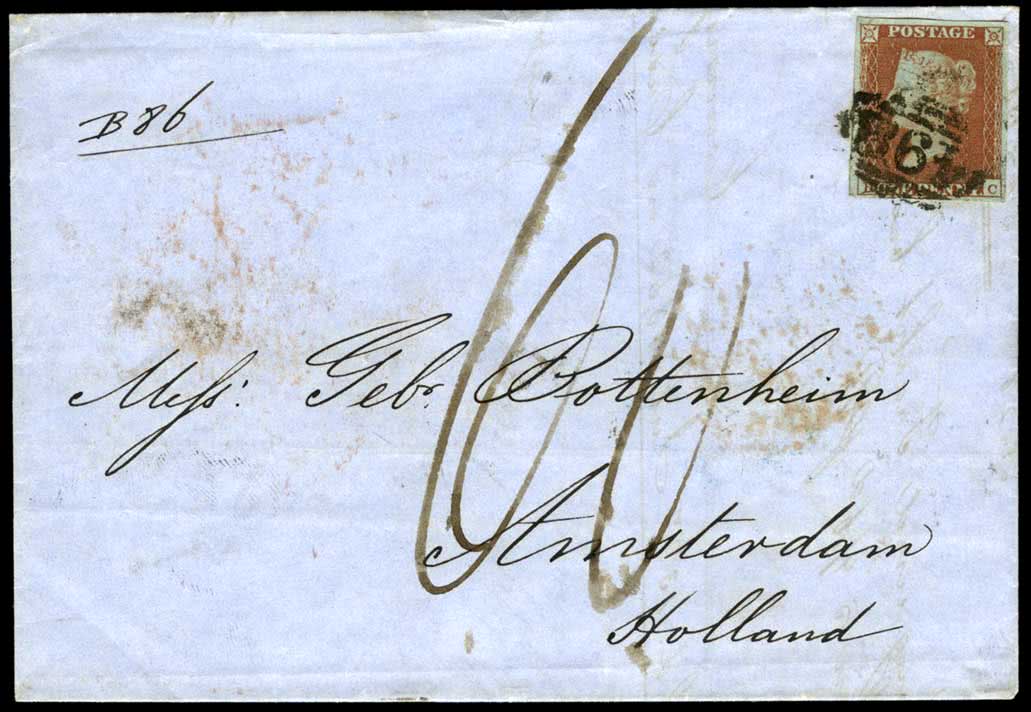 B 86
POSTAGE
6
60
Messs: Gebr. Bottenheim
Amsterdam
Holland
C